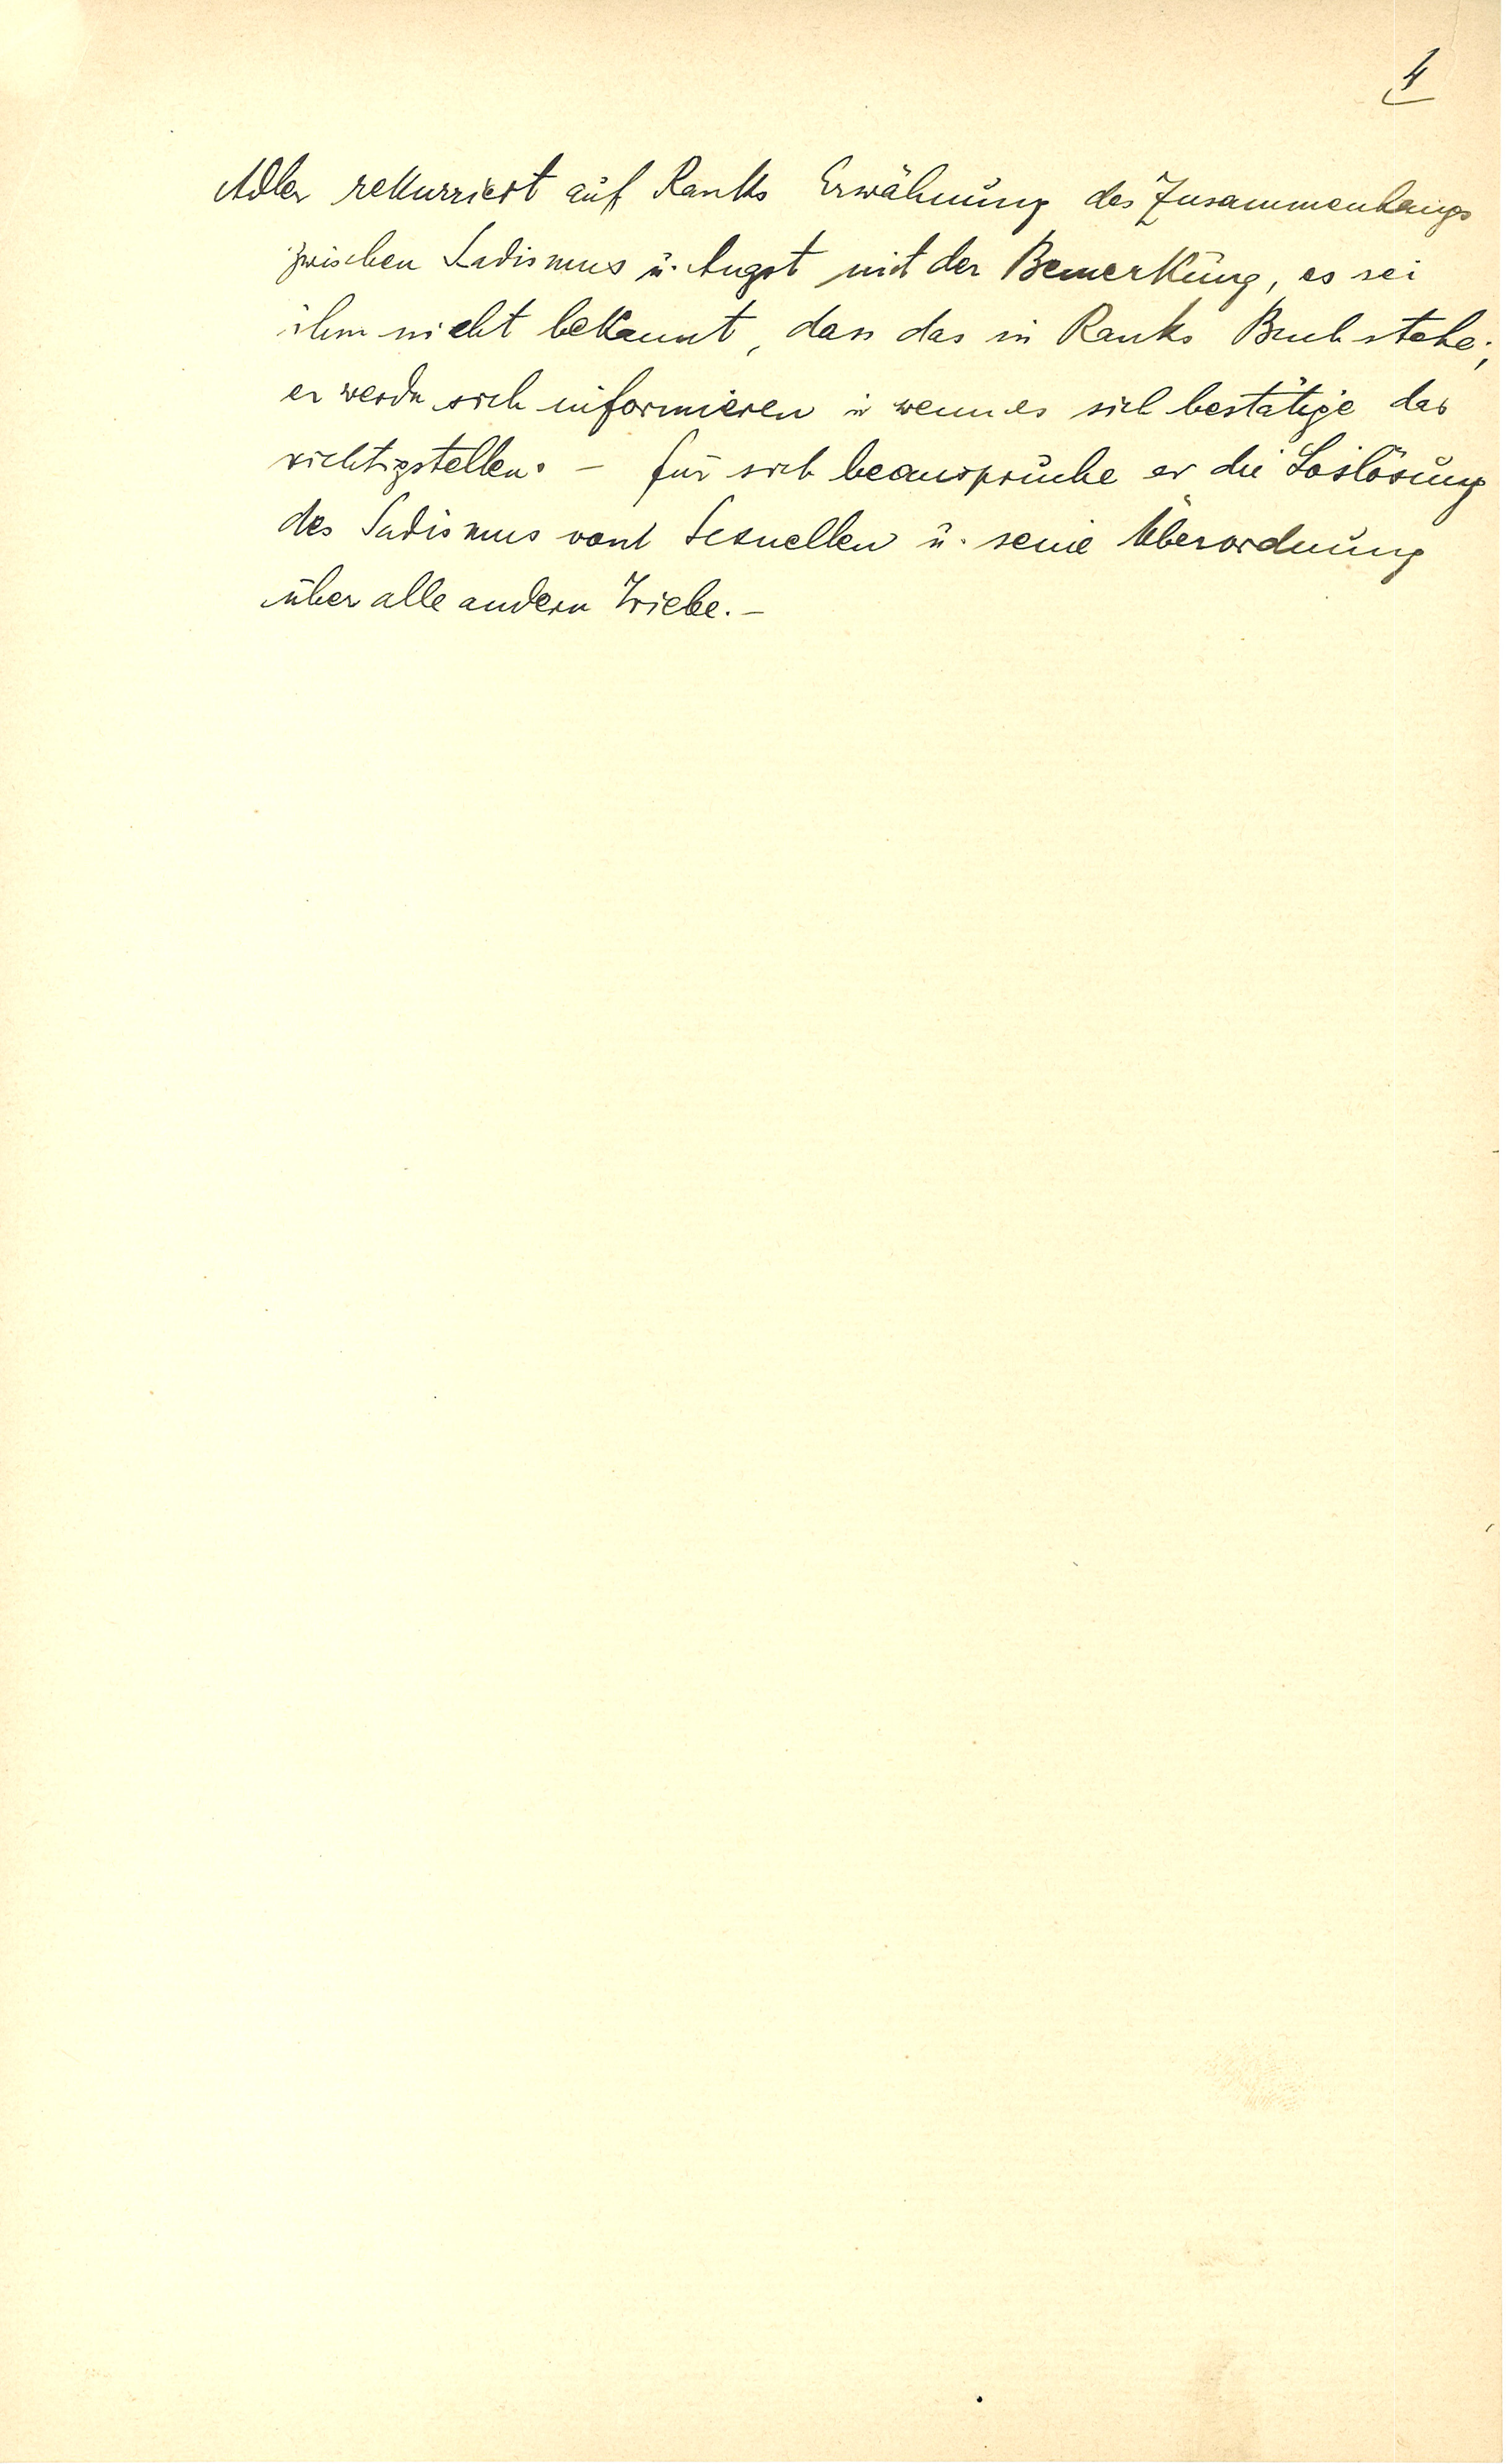 4
Adler rekurriert auf Ranks Erwähnung des Zusammenhangs
zwischen Sadismus u. Angst mit der Bemerkung, es sei
ihm nicht bekannt, dass das in Ranks Buch stehe;
er werde sich informieren u wenn es sich bestätige das
richtigstellen. – für sich beanspruche er die Loslösung
des Sadismus vom Sexuellen u. seine Überordnung
über alle andern Triebe. –